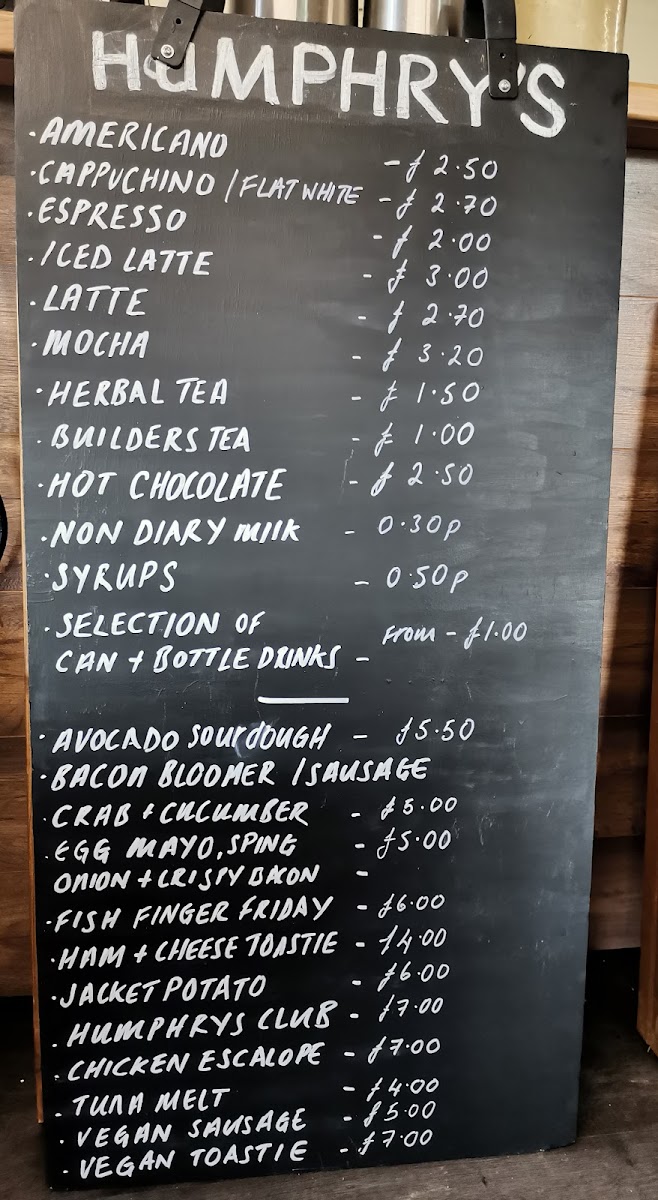 HUMPHRY'S
·AMERICANO - £2.50
·CAPPUCHINO / FLAT WHITE - £2.70
·ESPRESSO - £2.00
·ICED LATTE - £3.00
·LATTE - £2.70
·MOCHA - £3.20
·HERBAL TEA - £1.50
·BUILDERS TEA - £1.00
·HOT CHOCOLATE - £2.50
·NON DIARY milk - 0.30p
·SYRUPS - 0.50p
·SELECTION OF From - £1.00
CAN + BOTTLE DRINKS -
·AVOCADO SourdOUGH - £5.50
·BACON BLOOMER / SAUSAGE
·CRAB + CUCUMBER - £5.00
·EGG MAYO, SPING - £5.00
ONION + CRISPY BACON -
·FISH FINGER FRIDAY - £6.00
·HAM + CHEESE TOASTIE - £4.00
·JACKET POTATO - £6.00
·HUMPHRYS CLUB - £7.00
·CHICKEN ESCALOPE - £7.00
·TUNA MELT - £4.00
·VEGAN SAUSAGE - £5.00
·VEGAN TOASTIE - £7.00